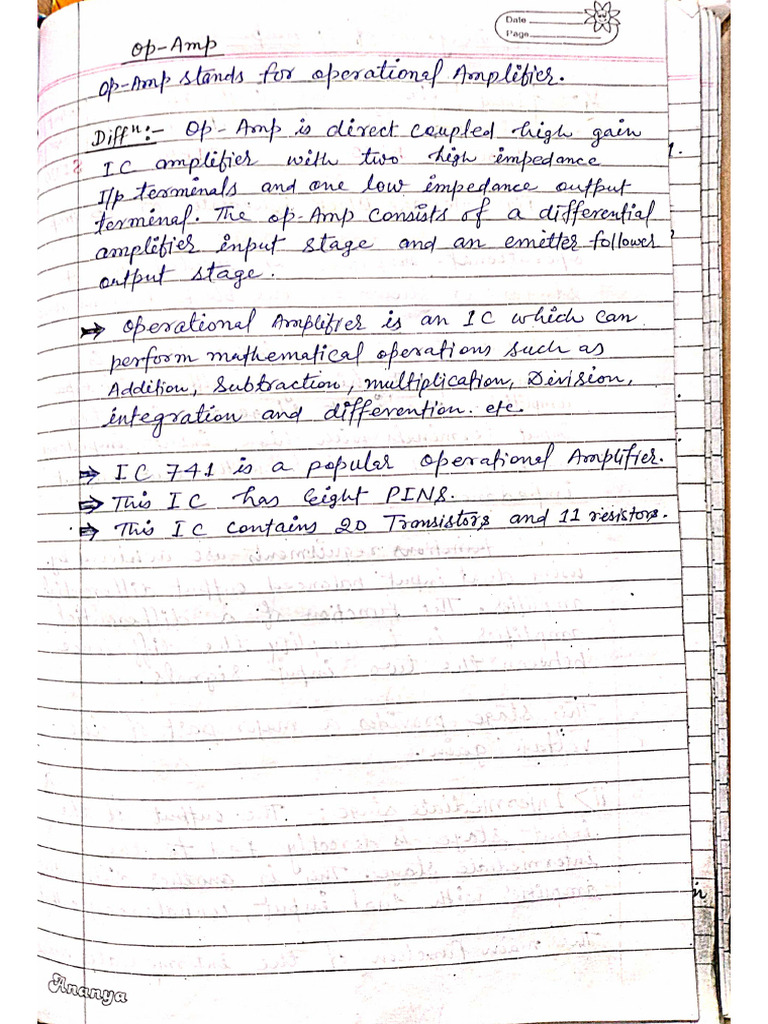 Date
Page
Op-Amp
Op-Amp stands for operational Amplifier.
Diffⁿ:- Op-Amp is direct coupled high gain
IC amplifier with two high impedance
I/p terminals and one low impedance output
terminal. The op-Amp consists of a differential
amplifier input stage and an emitter follower
output stage.
⇒ Operational Amplifier is an IC which can
perform mathematical operations such as
Addition, Subtraction, multiplication, Division,
integration and differention. etc.
⇒ IC 741 is a popular Operational Amplifier.
⇒ This IC has Eight PINS.
⇒ This IC contains 20 Transistors and 11 resistors.
Ananya